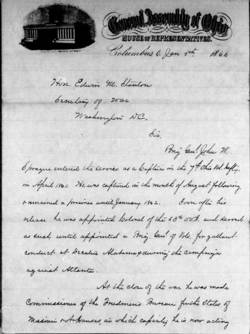 General Assembly of Ohio
HOUSE OF REPRESENTATIVES.
Columbus O. Jan 5th 1866
Hon Edwin M. Stanton
Secretary of War
Washington D.C.
Sir
Brig Genl John W.
Sprague entered the service as a Captain in the 7th Infty.
in April 1861. He was captured in the month of August following
& remained a prisoner until January 1862. Soon after his
release he was appointed Colonel of the 63rd OVI and served
as such until appointed a Brig Genl of Vols. for gallant
conduct at Decatur Alabama during the campaign
against Atlanta.
At the close of the war he was made
Commissioner of the Freedmens Bureau for the States of
Missouri & Arkansas, in which capacity he is now acting